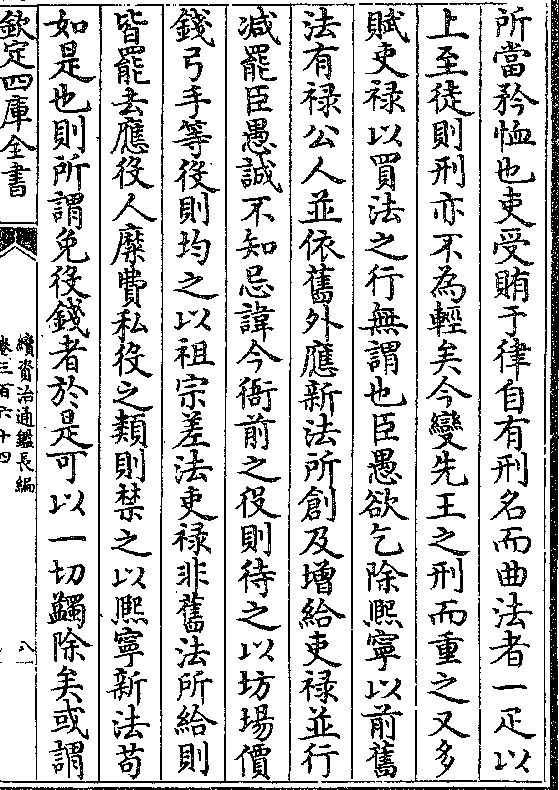 所當矜恤也吏受賄于律自有刑名而曲法者一疋以
上至徒則刑亦不為輕矣今變先王之刑而重之又多
賦吏禄以買法之行無謂也臣愚欲乞除熈寧以前舊
法有禄公人並依舊外應新法所創及增給吏禄並行
减罷臣愚誠不知忌諱今衙前之役則待之以坊場價
錢弓手等役則均之以祖宗差法吏禄非舊法所給則
皆罷去應役人縻費私役之類則禁之以熈寧新法苟
如是也則所謂免役錢者於是可以一切蠲除矣或謂
欽定四庫全書
續資治通鑑長編
卷三百六十四
八